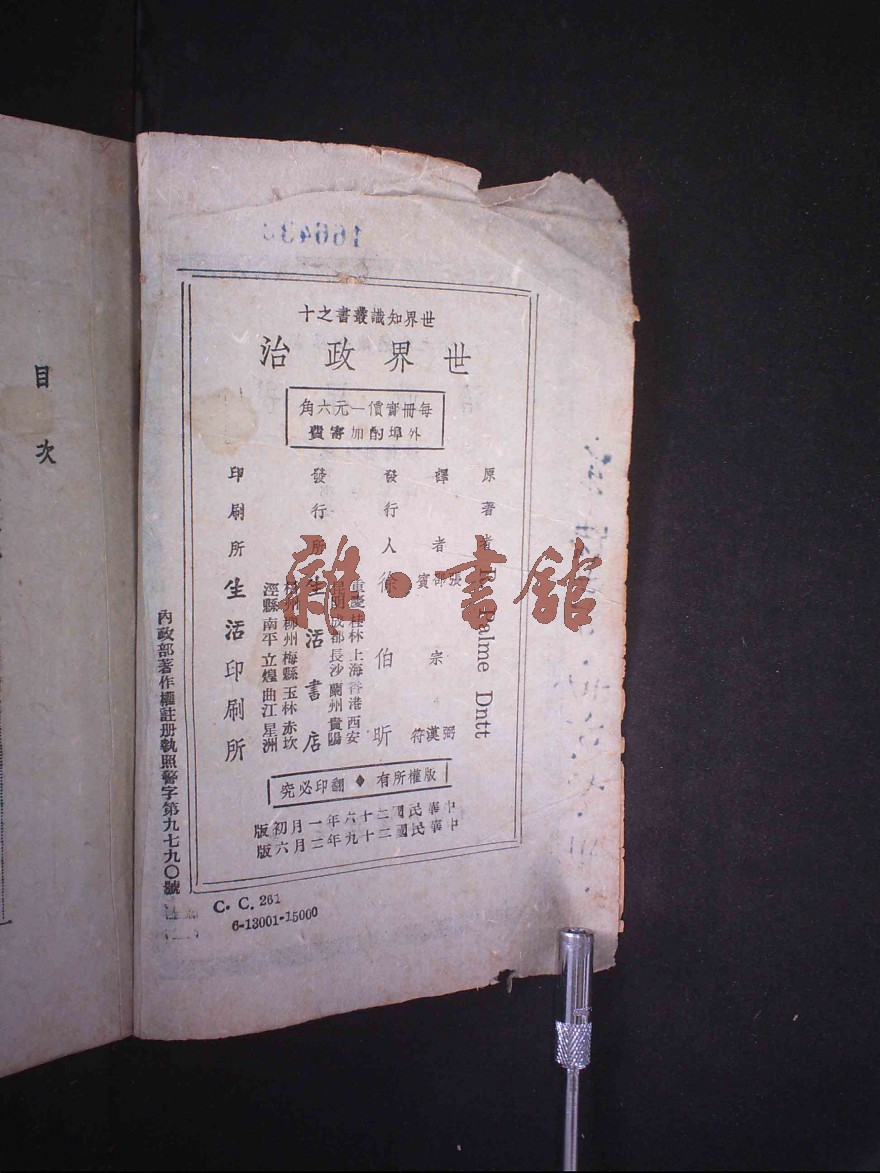 世界知識叢書之十
世界政治
每冊實價一元六角
外埠酌加寄費
原著者 R. Palme Dntt
譯者 張 賓 宗 弼漢符
發行人 徐伯昕
發行所 生活書店
重慶 桂林 上海 香港 西安
昆明 成都 長沙 蘭州 貴陽
柳州 梅縣 玉林 赤坎
涇縣 南平 立煌 曲江 星洲
印刷所 生活印刷所
版權所有◆翻印必究
中華民國二十六年一月初版
中華民國二十九年三月六版
內政部著作權註册執照警字第九七九〇號
C. C. 261
6-13001-15000
目次
雜·書館